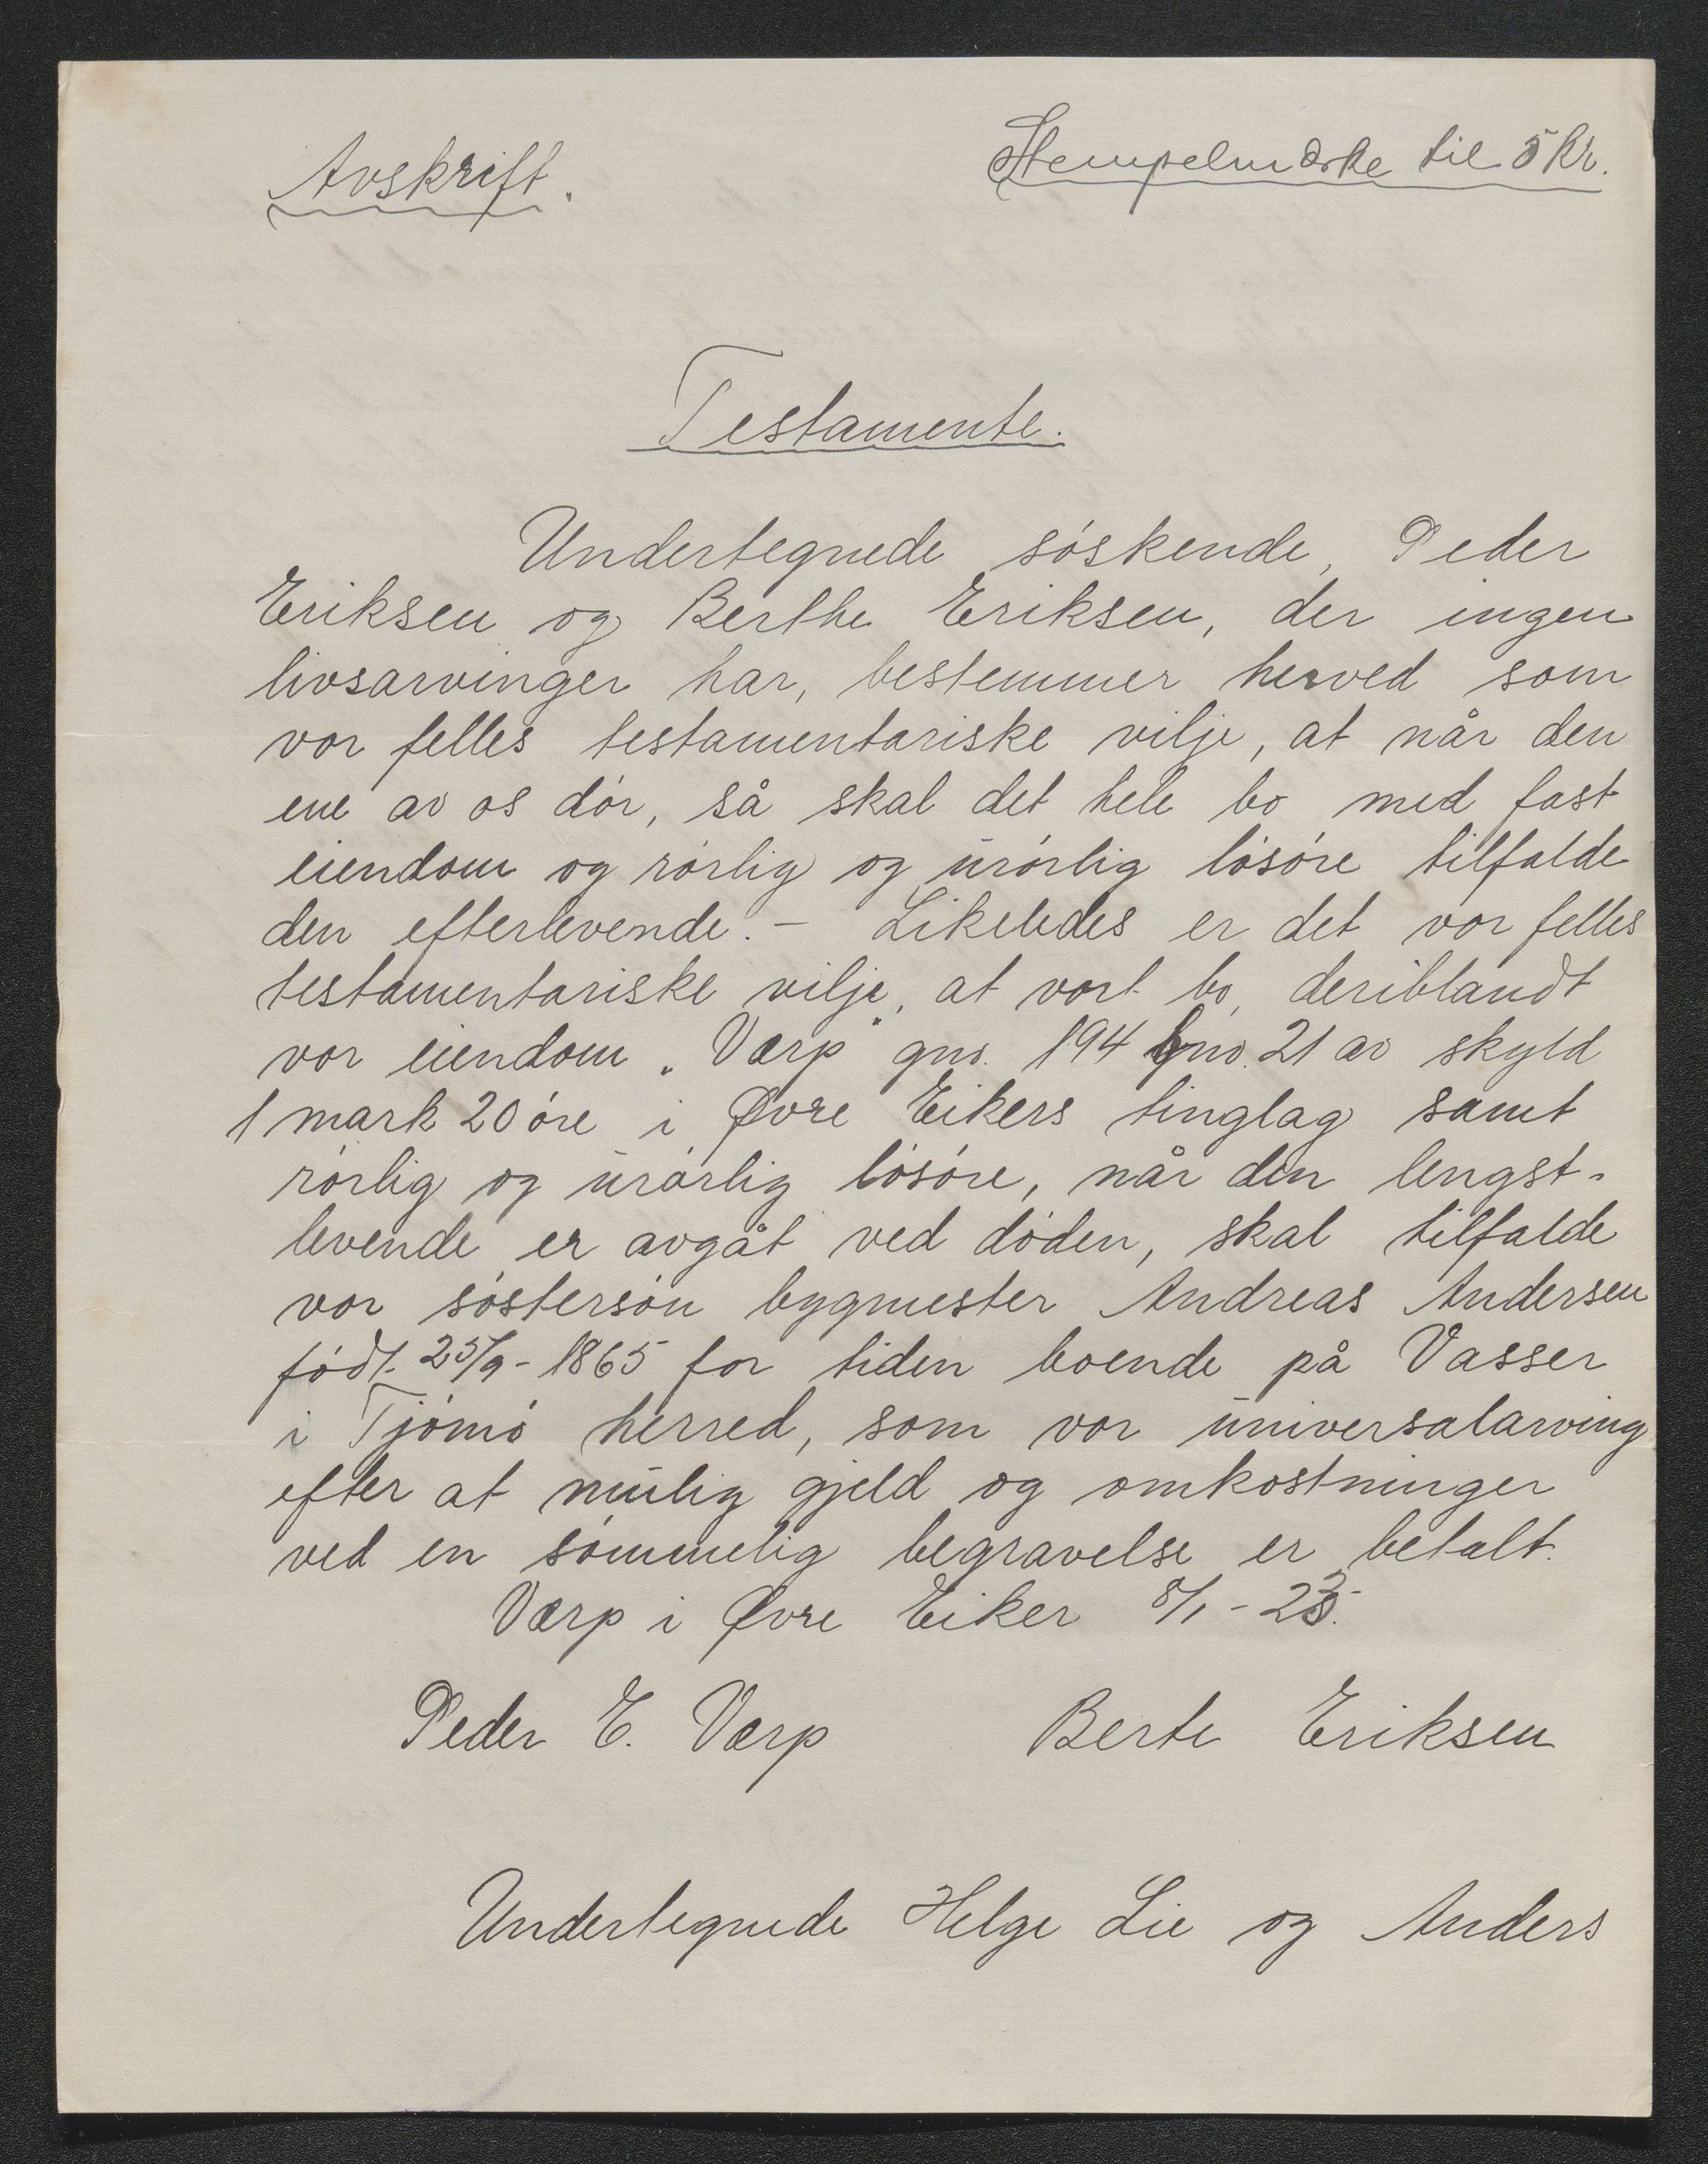 Avskrift.
Stempelmærke til 5 Kr.
Testamente.
Undertegnede søskende, Peder
Eriksen og Berthe Eriksen, der ingen
livsarvinger har, bestemmer herved som
vor felles testamentariske vilje, at når den
ene av os dør, så skal det hele bo med fast
eiendom og rørlig og urørlig løsøre tilfalde
den efterlevende. - Likeledes er det vor felles
testamentariske vilje, at vort bo, deriblandt
vor eiendom „Værp" gno. 194 bno. 21 av skyld
1 mark 20 øre i Øvre Eikers tinglag samt
rørlig og urørlig løsøre, når den lengst-
levende er avgåt ved døden, skal tilfalde
vor søstersøn bygmester Andreas Andersen
født 25/9 - 1865 for tiden boende på Vasser
i Tjømø herred, som vor universalarving
efter at mulig gjeld og omkostninger
ved en sømmelig begravelse er betalt.
Værp i Øvre Eiker 8/1 - 23.
Peder E. Værp Berte Eriksen
Undertegnede Helge Lie og Anders